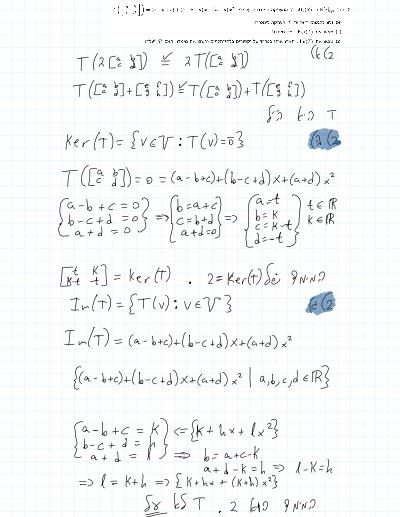 2) א)
T(2[a b; c d]) ≟ 2T([a b; c d])
T([a b; c d]+[e f; g h]) ≟ T([a b; c d])+T([e f; g h])
2) ב)
Ker(T) = {v∈V : T(v)=0̄}
T([a b; c d]) = 0 = (a-b+c)+(b-c+d)x+(a+d)x²
{a-b+c=0, b-c+d=0, a+d=0} ⇒ {b=a+c, c=b+d, a+d=0} ⇒ {a=t, b=k, c=k-t, d=-t} t∈ℝ k∈ℝ
[t k; k-t -t] = Ker(t) . 2 = Ker(t) של מימד
2) ג)
Im(T) = {T(v) : v∈V}
Im(T) = (a-b+c)+(b-c+d)x+(a+d)x²
{(a-b+c)+(b-c+d)x+(a+d)x² | a,b,c,d∈ℝ}
{a-b+c=k, b-c+d=h, a+d=l} ⇐ {k+hx+lx²}
⇒ b=a+c-k
a+d-k=h ⇒ l-k=h
⇒ l=k+h ⇒ {k+hx+(k+h)x²}
T לא על . 2